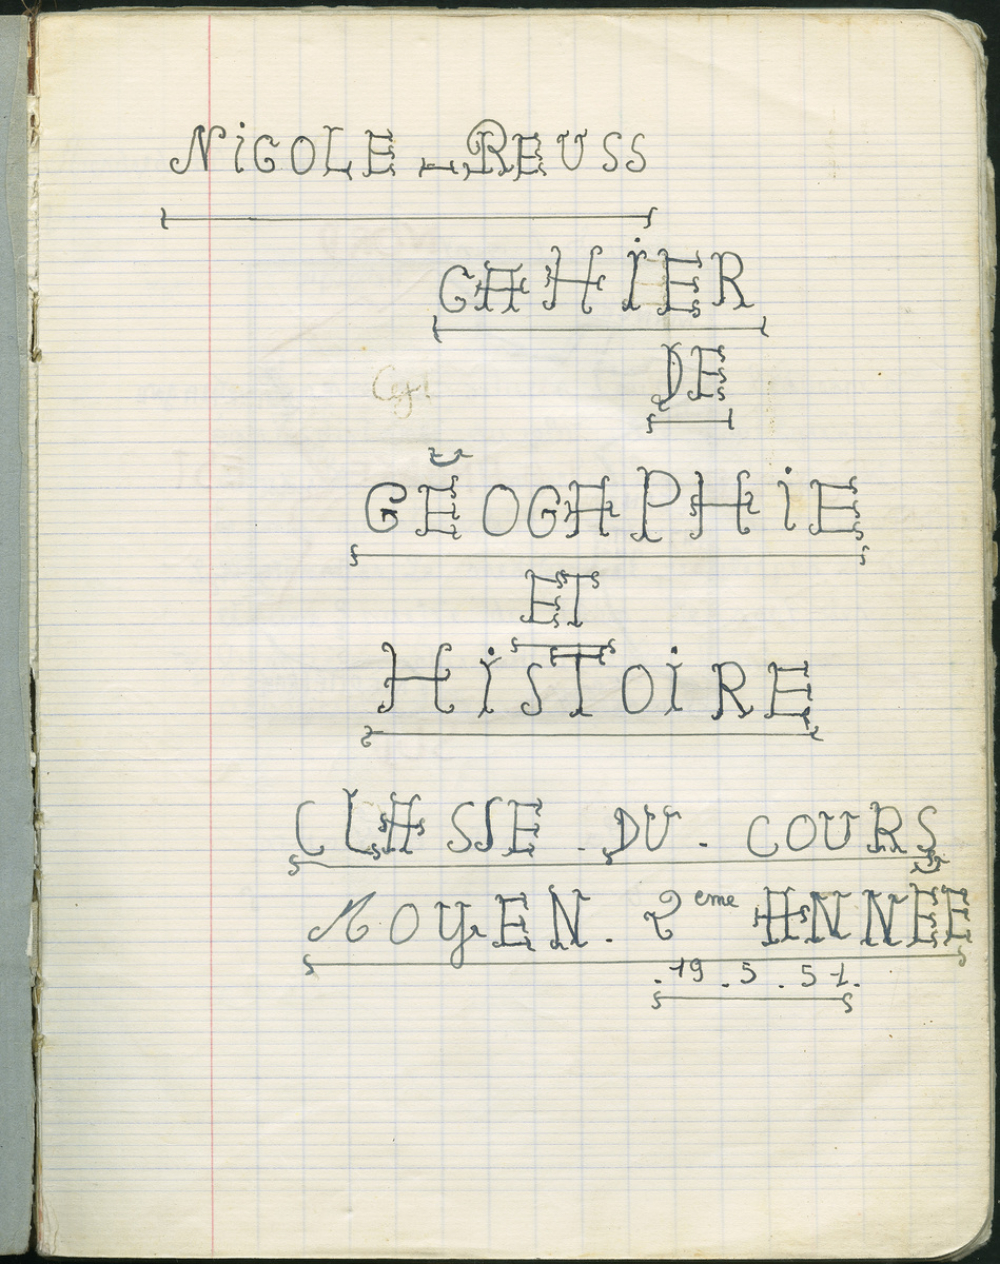 NiCOLE - REUSS
CAHiER
DE
GÉOGAPHiE
ET
HiSTOiRE
CLASSE . DU . COURS
MOYEN . 2eme ANNEE
.19.5.51.